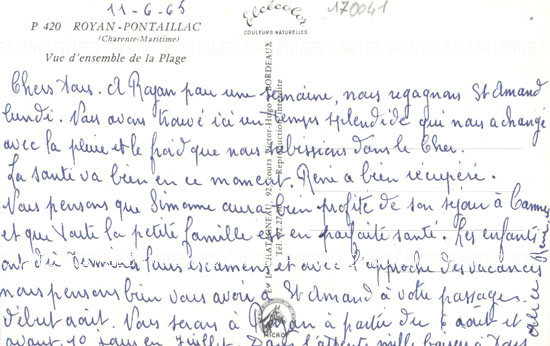 11-6-65
170041
P 420 ROYAN-PONTAILLAC
(Charente-Maritime)
Vue d'ensemble de la Plage
Elcécolor
COULEURS NATURELLES
CARTES POSTALES ANCIENNES
Chers tous. A Royan pour une semaine, nous regagnons St Amand
lundi. Nous avons trouvé ici un temps splendide qui nous a changé
avec la pluie et le froid que nous subissions dans le Cher.
La santé va bien en ce moment. René a bien récupéré.
Nous pensons que Simonne aura bien profité de son séjour à Cannes
et que toute la petite famille est en parfaite santé. Les enfants
ont dû terminer leurs examens et avec l'approche des vacances
nous pensons bien vous avoir à St Amand à votre passage
début août. Nous serons à Royan à partir du 6 août et
avant 10 jours en Juillet. Dans l'attente mille baisers à tous
92 Cours Victor-Hugo - BORDEAUX
Reproduction interdite